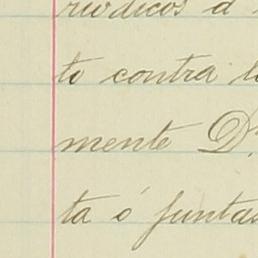 riodicos d
to contra l
mente D.
ta ó juntas